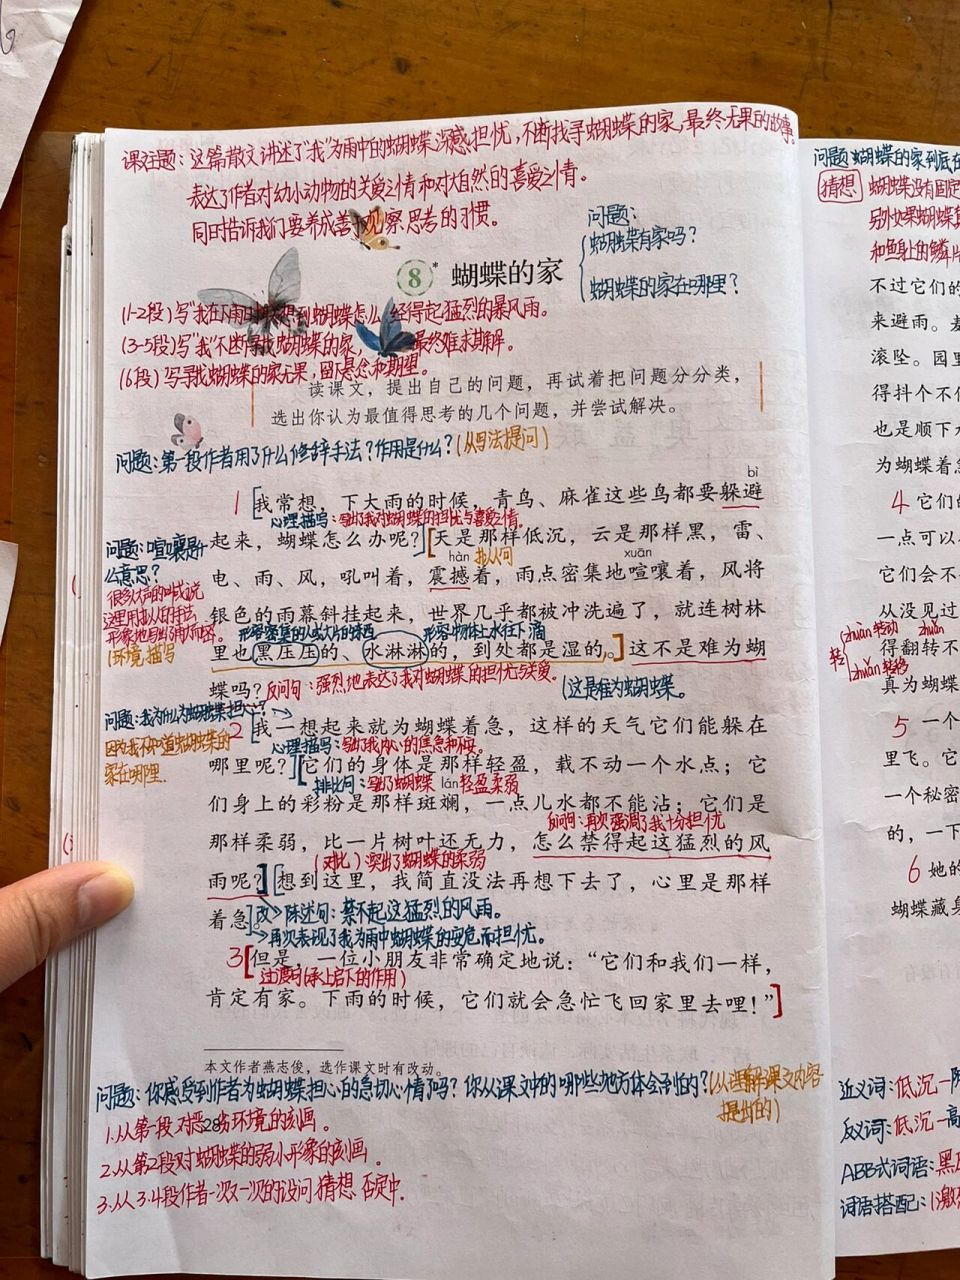 课主题：这篇散文讲述了"我"为雨中的蝴蝶深感担忧，不断找寻蝴蝶的家，最终无果的故事。
表达了作者对幼小动物的关爱之情和对大自然的喜爱之情。
同时告诉我们要养成善于观察思考的习惯。
问题：
蝴蝶有家吗？
蝴蝶的家在哪里？
8* 蝴蝶的家
(1-2段)写"我在下雨时联想到蝴蝶怎么经得起猛烈的暴风雨。
(3-5段)写"我"不断寻找蝴蝶的家，最终难求其解。
(6段)写寻找蝴蝶的家无果，留下悬念和期望。
读课文，提出自己的问题，再试着把问题分分类，
选出你认为最值得思考的几个问题，并尝试解决。
问题：第一段作者用了什么修辞手法？作用是什么？(从写法提问)
bì
1 我常想，下大雨的时候，青鸟、麻雀这些鸟都要躲避
心理描写：写出了我对蝴蝶的担忧与喜爱之情。
起来，蝴蝶怎么办呢？天是那样低沉，云是那样黑，雷、
hàn 拟人句 xuān
电、雨、风，吼叫着，震撼着，雨点密集地喧嚷着，风将
银色的雨幕斜挂起来，世界几乎都被冲洗遍了，就连树林
形容密集的人或大片的东西 形容物体上水往下滴
里也黑压压的、水淋淋的，到处都是湿的。这不是难为蝴
蝶吗？反问句：强烈地表达了我对蝴蝶的担忧与关爱。
(这是难为蝴蝶。
问题：喧嚷是什
么意思？
很多人大声的叫或说
这里用拟人的手法
环境描写
问题：我为什么为蝴蝶担心？
因为我不知道蝴蝶的
家在哪里.
2 我一想起来就为蝴蝶着急，这样的天气它们能躲在
心理描写：写出了我内心的焦急和不安。
哪里呢？它们的身体是那样轻盈，载不动一个水点；它
排比句：写出了蝴蝶 lán 轻盈柔弱
们身上的彩粉是那样斑斓，一点儿水都不能沾；它们是
反问句：再次强调了我十分担忧
那样柔弱，比一片树叶还无力，怎么禁得起这猛烈的风
(对比)突出了蝴蝶的柔弱
雨呢？想到这里，我简直没法再想下去了，心里是那样
着急。
改》陈述句：禁不起这猛烈的风雨。
再次表现了我为雨中蝴蝶的安危而担忧。
3 但是，一位小朋友非常确定地说："它们和我们一样，
过渡句(承上启下的作用)
肯定有家。下雨的时候，它们就会急忙飞回家里去哩！"
本文作者燕志俊，选作课文时有改动。
问题：你感受到作者为蝴蝶担心的急切心情了吗？你从课文中的哪些地方体会到的？(从理解课文内容
提出的)
1.从第一段对恶劣环境的刻画。
28
2.从第2段对蝴蝶的弱小形象的刻画。
3.从3.4段作者一次又一次的设问猜想否定中.
问题蝴蝶的家到底在
猜想
蝴蝶没有固定
另外如果蝴蝶
和鱼身上的鳞片
不过它们的
来避雨。麦
滚坠。园里
得抖个不
也是顺下
为蝴蝶着急
4 它们的
一点可以
它们会不
从没见过
转 zhuàn 转动 zhuǎn
得翻转不
zhuǎn 转移
真为蝴蝶
5 一个
里飞。它
一个秘密
的，一下
6 她的
蝴蝶藏身
近义词：低沉—阴
反义词：低沉—高
ABB式词语：黑压
词语搭配：(激烈